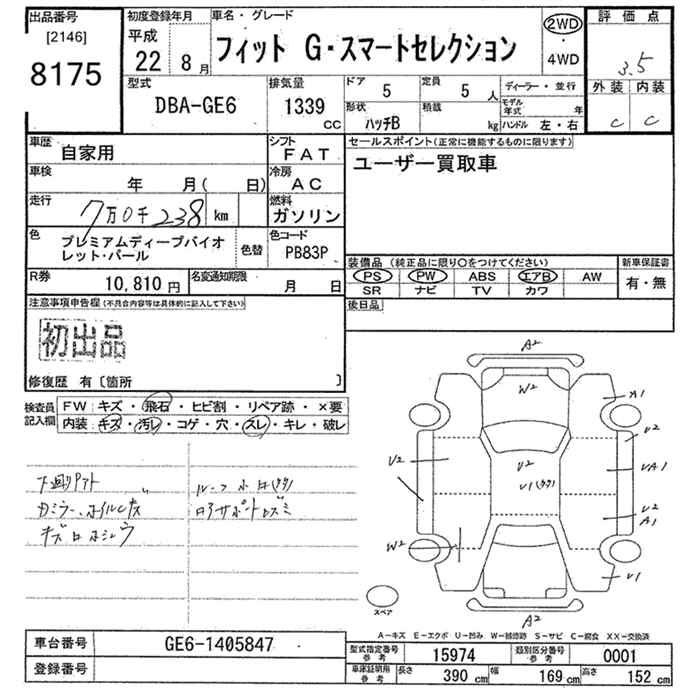 出品番号 [2146] 8175
初度登録年月 平成 22 年 8 月
車名・グレード フィット G・スマートセレクション
2WD ・ 4WD
評価点 3.5
外装 内装
C C
型式 DBA-GE6
排気量 1339 CC
ドア 5
定員 5 人
形状 ハッチB
積載 kg
ディーラー・並行
モデル年式 年
ハンドル 左・右
車歴 自家用
シフト FAT
セールスポイント(正常に機能するものに限ります)
ユーザー買取車
車検 年 月( 日)
冷房 AC
走行 7万0千238 km
燃料 ガソリン
色 プレミアムディープバイオレット・パール
色替
色コード PB83P
R券 10,810 円
名変通知期限 月 日
装備品(純正品に限り○をつけてください)
新車保証書
PS PW ABS エアB AW
SR ナビ TV カワ
有・無
後日品
注意事項申告欄(不具合内容等は具体的に記入して下さい)
初出品
修復歴 有〔箇所 〕
検査員記入欄
FW: キズ・飛石・ヒビ割・リペア跡・×要
内装: キズ・汚レ・コゲ・穴・スレ・キレ・破レ
A2
W2
A1
U2
U2
U2
UA1
U2
A1
W2
U1
A2
スペア
A-キズ E-エクボ U-凹み W-補修跡 S-サビ C-腐食 XX-交換済
車台番号 GE6-1405847
登録番号
型式指定番号 参考 15974
類別区分番号 参考 0001
車庫証明用 参考 長さ 390 cm 幅 169 cm 高さ 152 cm